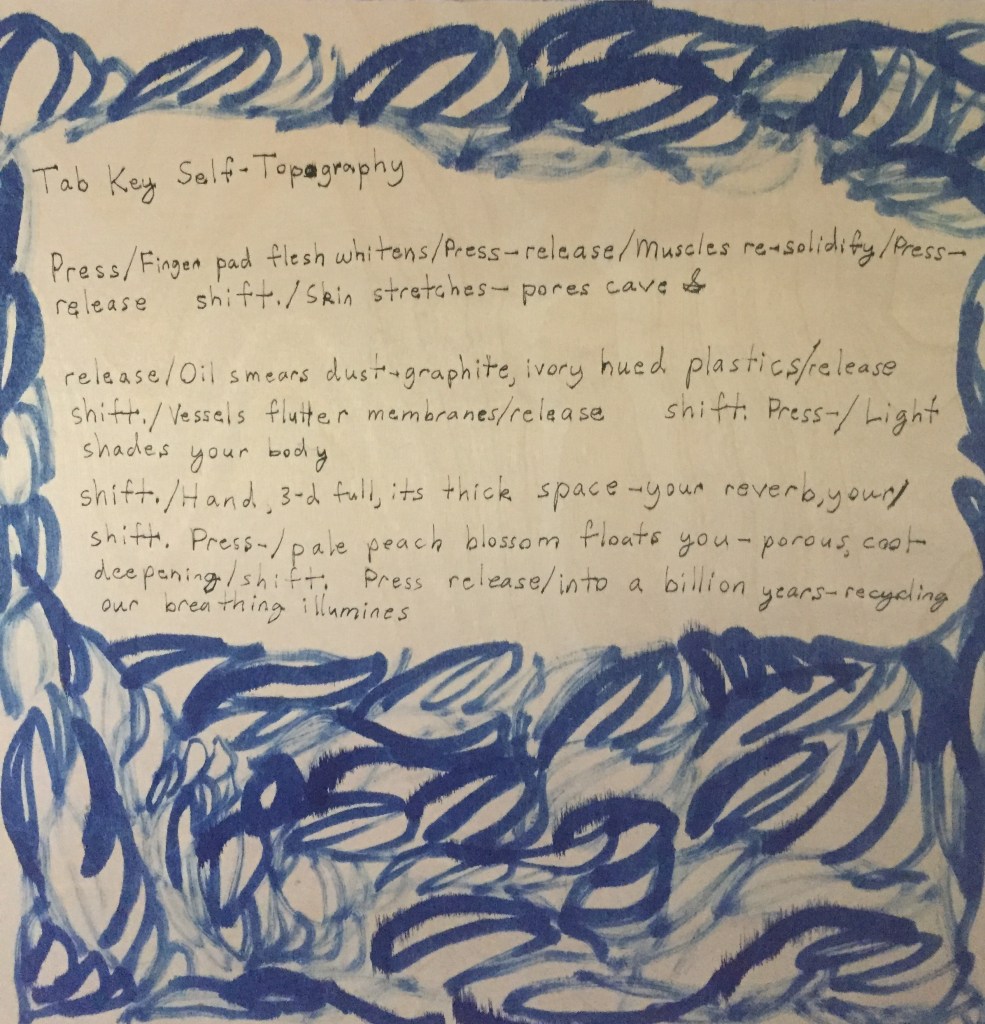 Tab Key Self-Topography
Press/Finger pad flesh whitens/Press-release/Muscles re-solidify/Press-
release shift./Skin stretches-pores cave &
release/Oil smears dust-graphite, ivory hued plastics/release
shift./Vessels flutter membranes/release shift. Press-/Light
shades your body
shift./Hand, 3-d full, its thick space-your reverb, your/
shift. Press-/pale peach blossom floats you-porous, cool
deepening/shift. Press release/into a billion years-recycling
our breathing illumines